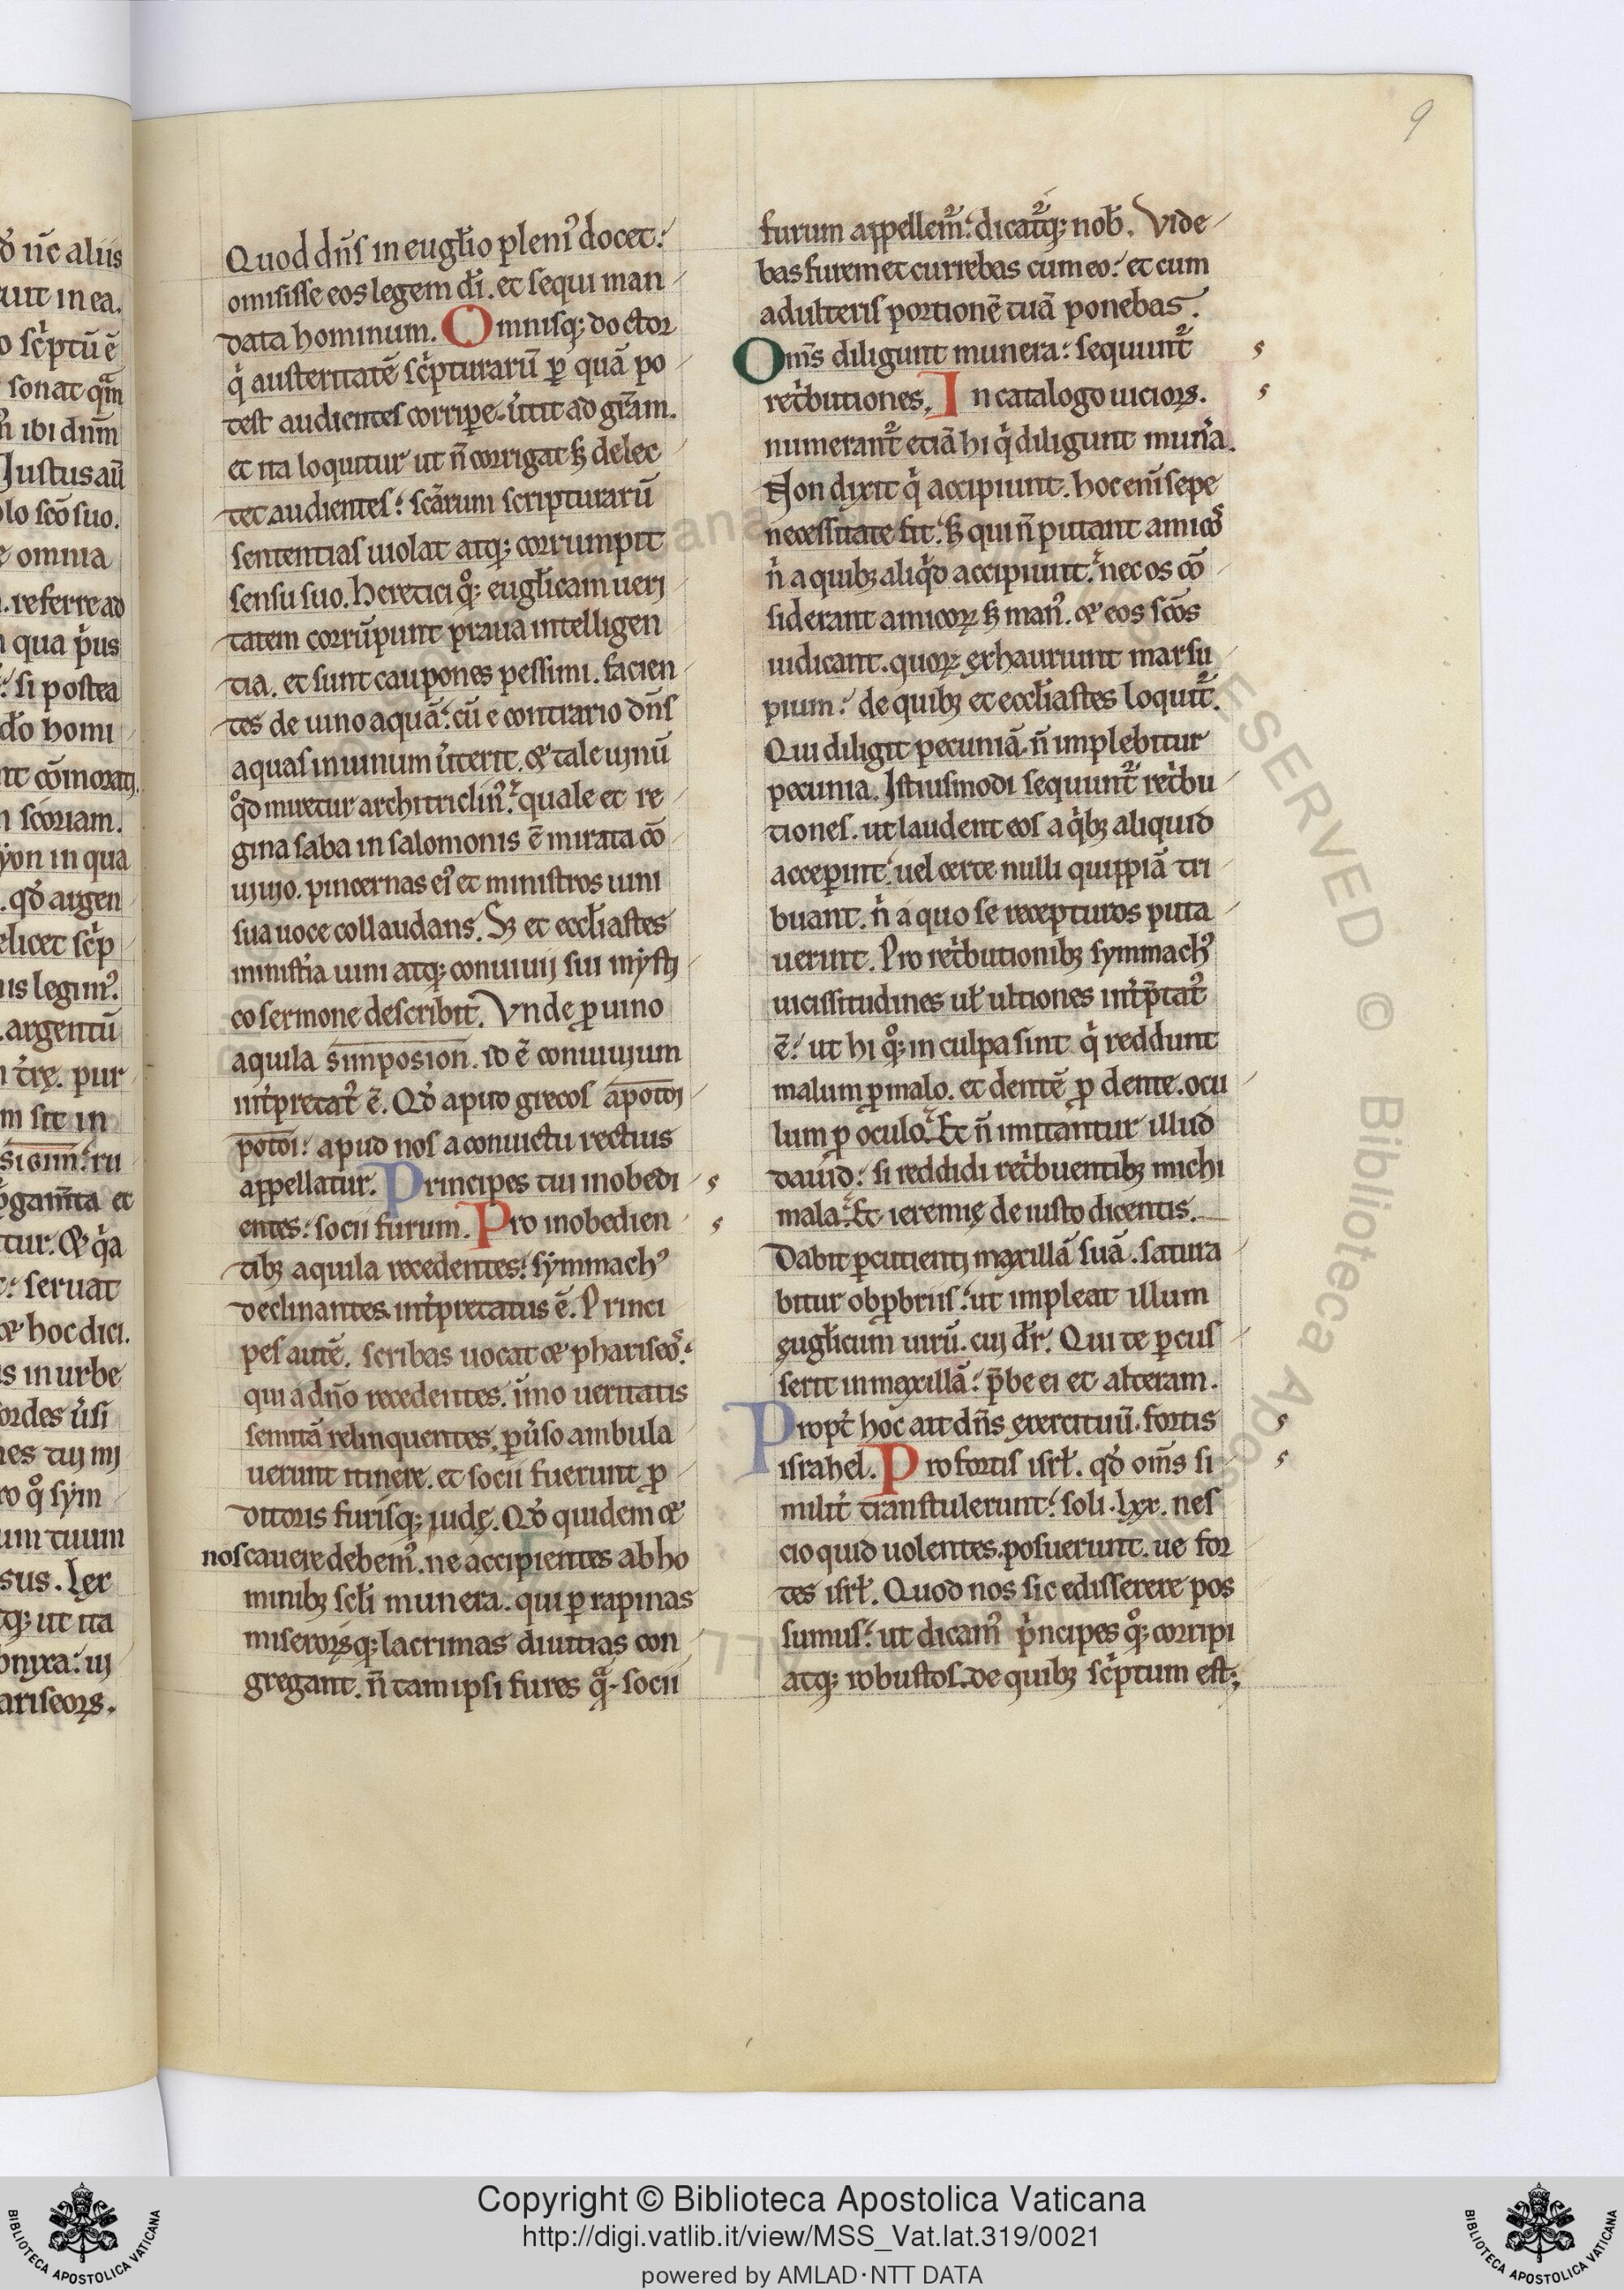 9
Quod dn̄s in eugłio pleniꝰ docet.
omisisse eos legem di̅. et sequi man
data hominum. Omnisq; doctor
q̇ austeritatē sc̓pturarū ꝑ quā po
test audientes corripe. u̓tit ad gr̄am.
et ita loquitur ut n̄ corrigat ꝫ delec
tet audientes. sc̄arum scripturarū
sententias uiolat atq; corrumpit
sensu suo. heretici qͦ; eugłicam ueri
tatem corrūpunt praua intelligen
tia. et sunt caupones pessimi. facien
tes de uino aquā. cū e contrario dn̄s
aquas in uinum u̓terit. & tale uinū
qͦd miretur architriclinꝰ. quale et re
gina saba in salomonis ē mirata cō
uiuio. pincernas eiꝰ et ministros uini
sua uoce collaudans. Sꝫ et eccłiastes
minist̓ia uini atq; conuiuii sui mẏsti
co sermone describit᷑. Vnde ꝑ uino
aquila simposion. id ē conuiuium
int̓pretatꝰ ē. Qd̓ apud grecos apotoi
potoi. apud nos a conuictu rectius
appellatur. Principes tui inobedi
entes. socii furum. Pro inobedien
tibꝫ aquila recedentes. sẏmmachꝰ
declinantes. int̓pretatus ē. Princi
pes autē. scribas uocat & phariseos.
qui a dn̄o recedentes. īmo ueritatis
semitā relinquentes. pu̓so ambula
uerunt itinere. et socii fuerunt ꝓ
ditoris furisq; iudę. Qd̓ quidem &
nos cauere debemꝰ. ne accipientes ab ho
minibꝫ scłi munera. qui ꝑ rapinas
miseroꝝq; lacrimas diuitias con
gregant. n̄ tam ipsi fures qᷓ socii
furum appellem᷑. dicat᷑q; nob̄. Vide
bas furem et currebas cum eo. et cum
adulteris portionē tuā ponebas.
Om̄s diligunt munera. sequunt᷑
ret̓butiones. In catalogo uicioꝝ.
numerant᷑ etiā hi q̇ diligunt mun̓a.
Non dixit q̇ accipiunt. hoc enī sepe
necessitate fit. ꝫ qui n̄ putant amicos
n̓ a quibꝫ aliq̇d accipiunt. nec os cō
siderant amicoꝝ ꝫ manꝰ. & eos sc̄os
iudicant. quoꝝ exhauriunt marsu
pium. de quibꝫ et eccłiastes loquit᷑.
Qui diligit pecuniā. n̄ implebitur
pecunia. Istiusmodi sequunt᷑ ret̓bu
tiones. ut laudent eos a q̇bꝫ aliquid
acceperint. uel certe nulli quippiā tri
buant. n̓ a quo se recepturos puta
uerint. Pro ret̓butionibꝫ symmachꝰ
uicissitudines uł ultiones int̓p̄tatꝰ
ē. ut hi qͦ; in culpa sint q̇ reddunt
malum ꝓ malo. et dentē ꝓ dente. ocu
lum ꝓ oculo. Et n̄ imitantur illud
dauid. si reddidi ret̓buentibꝫ michi
mala. Et ieremię de iusto dicentis.
Dabit ꝑcutienti maxillā suā. satura
bitur obprobriis. ut impleat illum
eugłicum uirū. cui dr̄. Qui te ꝑcus
serit in maxillā. p̄be ei et alteram.
Propt̓ hoc ait dn̄s exercituū. fortis
israhel. Pro fortis isrł. qd̓ om̄s si
milit̓ transtulerunt. soli .lxx. nes
cio quid uolentes. posuerunt. ue for
tes isrł. Quod nos sic edisserere pos
sumus. ut dicamꝰ p̓ncipes qͦ; corripi
atq; robustos. de quibꝫ sc̓ptum est;
Copyright © Biblioteca Apostolica Vaticana
http://digi.vatlib.it/view/MSS_Vat.lat.319/0021
powered by AMLAD·NTT DATA
BIBLIOTECA APOSTOLICA VATICANA
BIBLIOTECA APOSTOLICA VATICANA